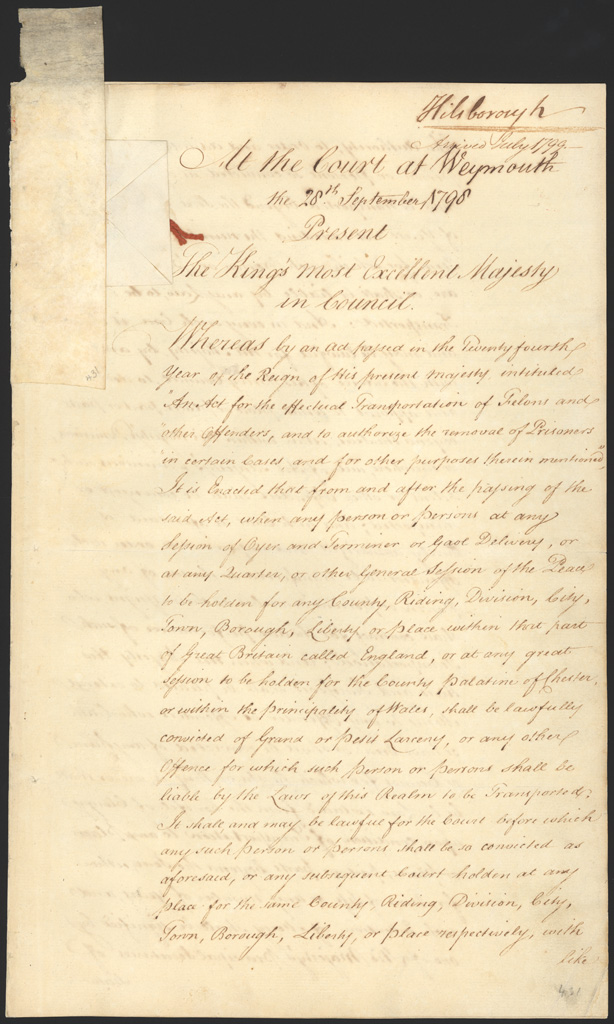 Hilsborough
Arrived July 1799
At the Court at Weymouth
the 28th September 1798
Present
The King's most Excellent Majesty
in Council.
Whereas by an act passed in the Twenty fourth
Year of the Reign of His present majesty intituled
"An Act for the effectual Transportation of Felons and
"other Offenders, and to authorize the removal of Prisoners
"in certain Cases, and for other purposes therein mentioned"
It is Enacted that from and after the passing of the
said Act, when any person or persons at any
Session of Oyer and Terminer or Gaol Delivery, or
at any Quarter, or other General Session of the Peace
to be holden for any County, Riding, Division, City,
Town, Borough, Liberty or place within that part
of Great Britain called England, or at any great
session to be holden for the County palatine of Chester,
or within the principality of Wales, shall be lawfully
convicted of Grand or petit Larceny, or any other
Offence for which such person or persons shall be
liable by the Laws of this Realm to be Transported;
It shall and may be lawful for the Court before which
any such person or persons shall be so convicted as
aforesaid, or any subsequent Court holden at any
place for the same County, Riding, Division, City,
Town, Borough, Liberty, or place respectively, with
like
431
431